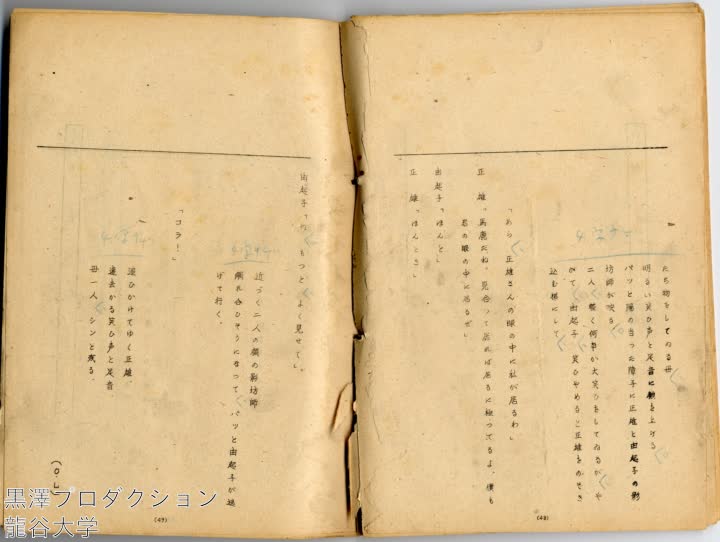 たち物をしてゐる母
明るい笑ひ声と足音に顔を上げる
パッと陽の当つた障子に正雄と由起子の影
坊師が映る
二人、軽く何事か大笑ひをしてゐるが、や
がて、由起子、笑ひやめると正雄をのぞき
込む様にして
「あら、正雄さんの眼の中に私が居るわ」
正雄「馬鹿だね、見合つて居れば居るに極つてるよ、僕も
君の眼の中に居るぜ」
由起子「ほんと」
正雄「ほんとさ」
(48)
由起子「もつとよく見せて」
近づく二人の横の影坊師
頬れ合ひそうになつて、パッと由起子が逃
げて行く。
「コラ!」
追ひかけてゆく正雄、
遠去かる笑ひ声と足音
母一人、シンと残る。
(O・L)
(49)
4字サゲ
4字サゲ
4字サゲ
黒澤プロダクション
龍谷大学